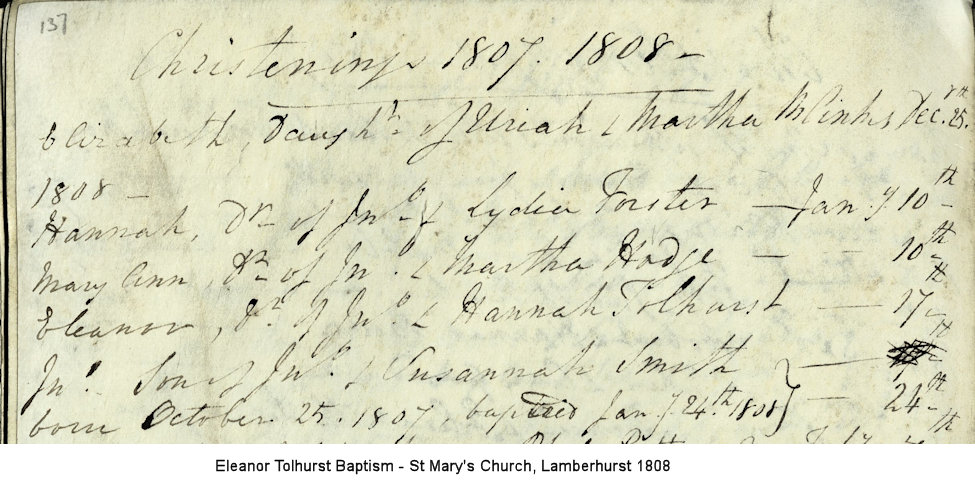 137
Christenings 1807. 1808 -
Elizabeth, Daughr. of Uriah & Martha Dec. 25.th
1808 -
Hannah, Dr. of Jno. & Lydia Forster - Jan.y 10th -
Mary Ann, Dr. of Jno. & Martha Hodge - - 10th -
Eleanor, Dr. of Jno. & Hannah Tolhurst - 17th -
Jno. Son of Jno. & Susannah Smith } -
born October 25. 1807. baptized Jan.y 24.th 1808 } - 24th -
Eleanor Tolhurst Baptism - St Mary's Church, Lamberhurst 1808